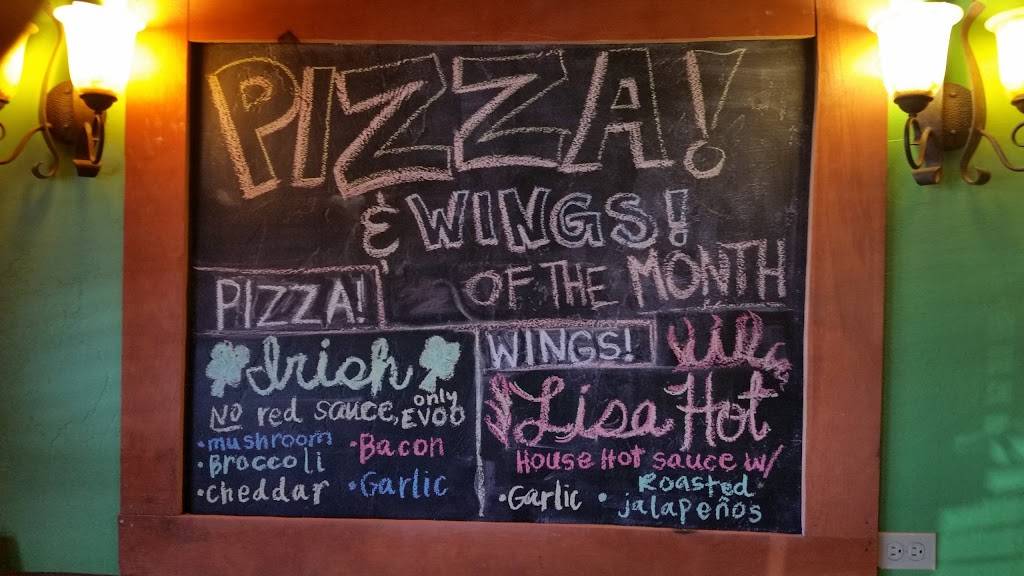 PIZZA!
& WINGS!
OF THE MONTH
PIZZA!
Irish
NO red sauce, only EVOO
• mushroom • Bacon
• Broccoli
• cheddar • Garlic
WINGS!
Lisa Hot
House Hot sauce w/
• Garlic • Roasted jalapeños